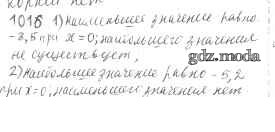 корней нет
1016 1) наименьшее значение равно
-3,5 при x = 0; наибольшего значения
не существует,
gdz.moda
2) наибольшее значение равно -5,2
при x = 0, наименьшего значения нет